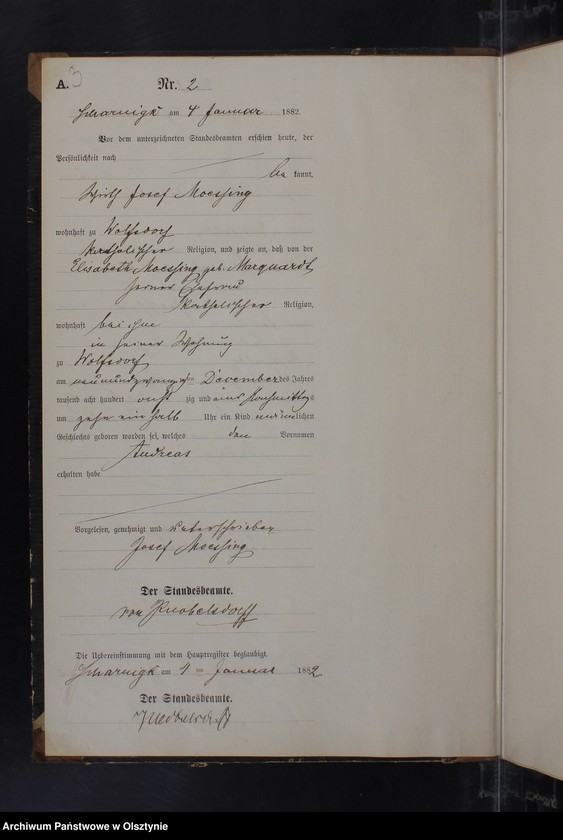 A. 3
Nr. 2
Scharnigk am 4 Januar 1882.
Vor dem unterzeichneten Standesbeamten erschien heute, der
Persönlichkeit nach
be kannt,
Wirth Josef Moessing
wohnhaft zu Wolfsdorf
katholischer Religion, und zeigte an, daß von der
Elisabeth Moessing geb. Marquardt
seiner Ehefrau
katholischer Religion,
wohnhaft bei ihm
in seiner Wohnung
zu Wolfsdorf
am neunundzwanzigsten December des Jahres
tausend acht hundert acht zig und eins Nachmittags
um zehn ein halb Uhr ein Kind männlichen
Geschlechts geboren worden sei, welches den Vornamen
Andreas
erhalten habe
Vorgelesen, genehmigt und unterschrieben
Josef Moessing
Der Standesbeamte.
von Knobelsdorff
Die Uebereinstimmung mit dem Hauptregister beglaubigt.
Scharnigk am 4 ten Januar 1882
Der Standesbeamte.
Archiwum Państwowe w Olsztynie